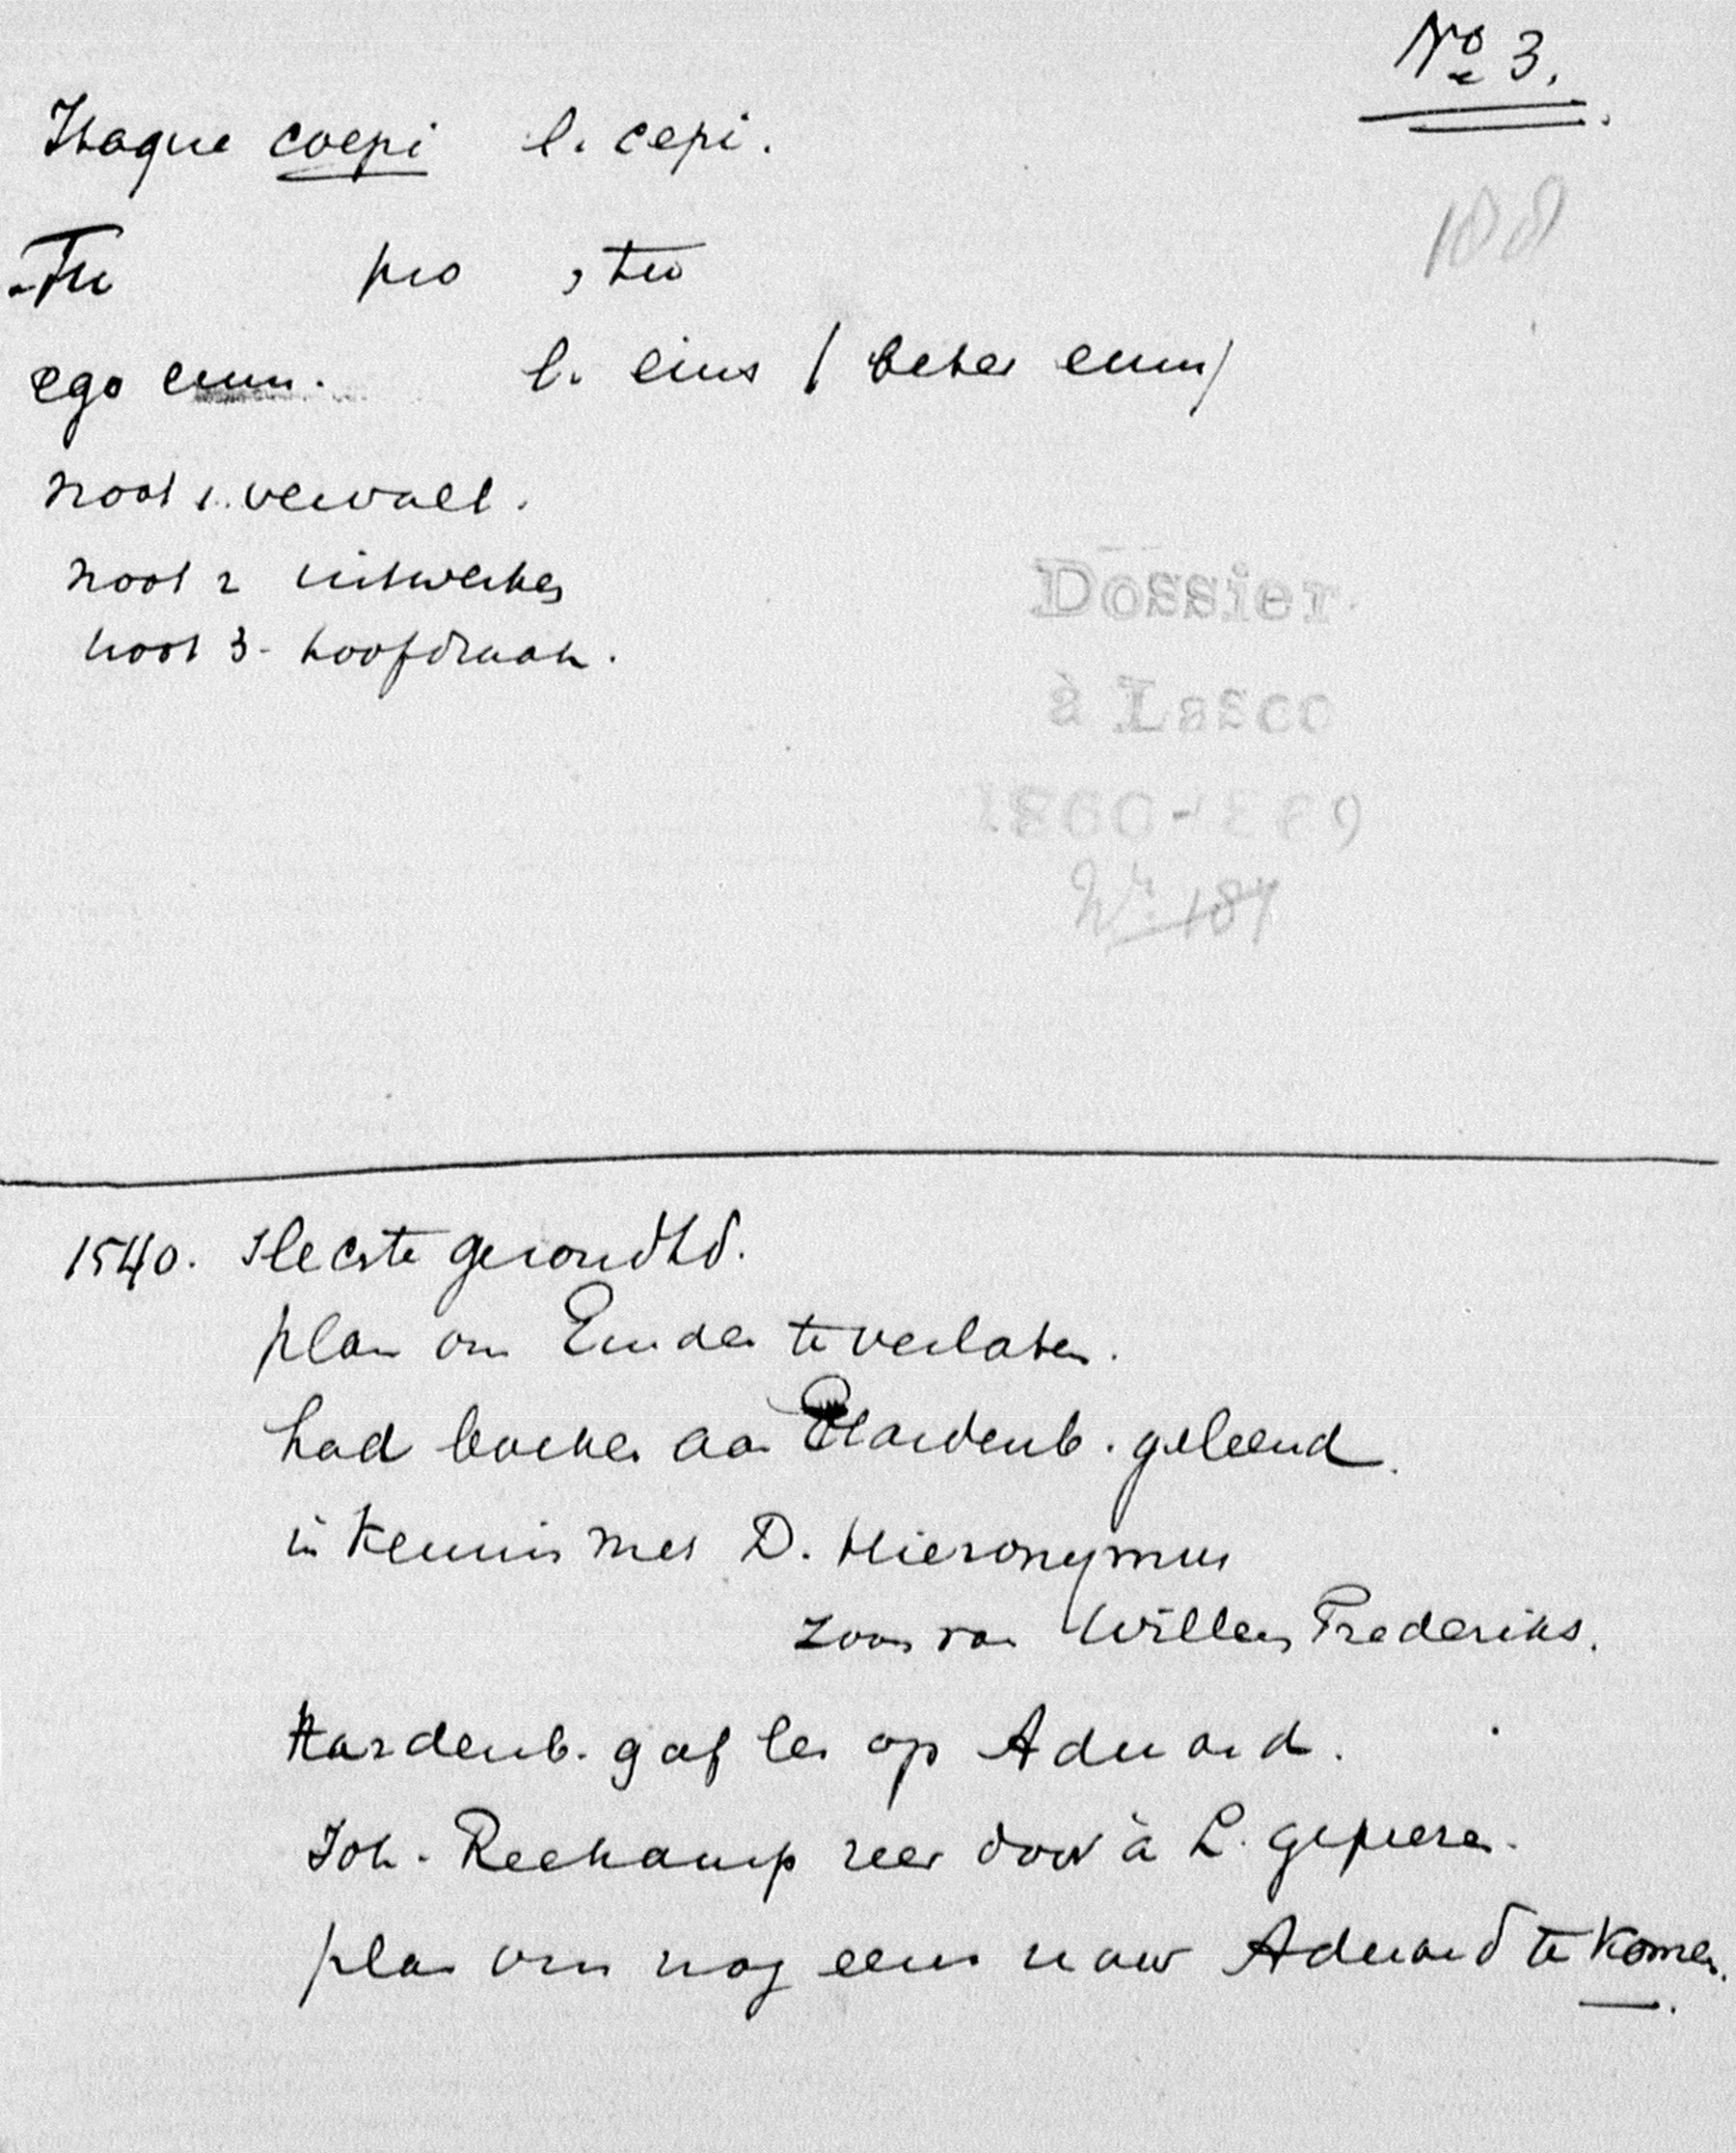 No 3.
Itaque coepi l. cepi.
188
Tu pro , tu
ego eum. l. eius ( beter eum)
noot 1. vervalt.
noot 2 uitwerken
noot 3 - hoofdzaak.
Dossier
à Lasco
1860-1869
Nr. 187
1540. Slechte gezondhd.
plan om Emden te verlaten.
had boeken aan Hardenb. geleend.
in kennis met D. Hieronymus
zoon van Willem Frederiks.
Hardenb. gaf les op Aduard.
Joh. Reekamp zeer door à L. geprezen.
plan om nog eens naar Aduard te komen.